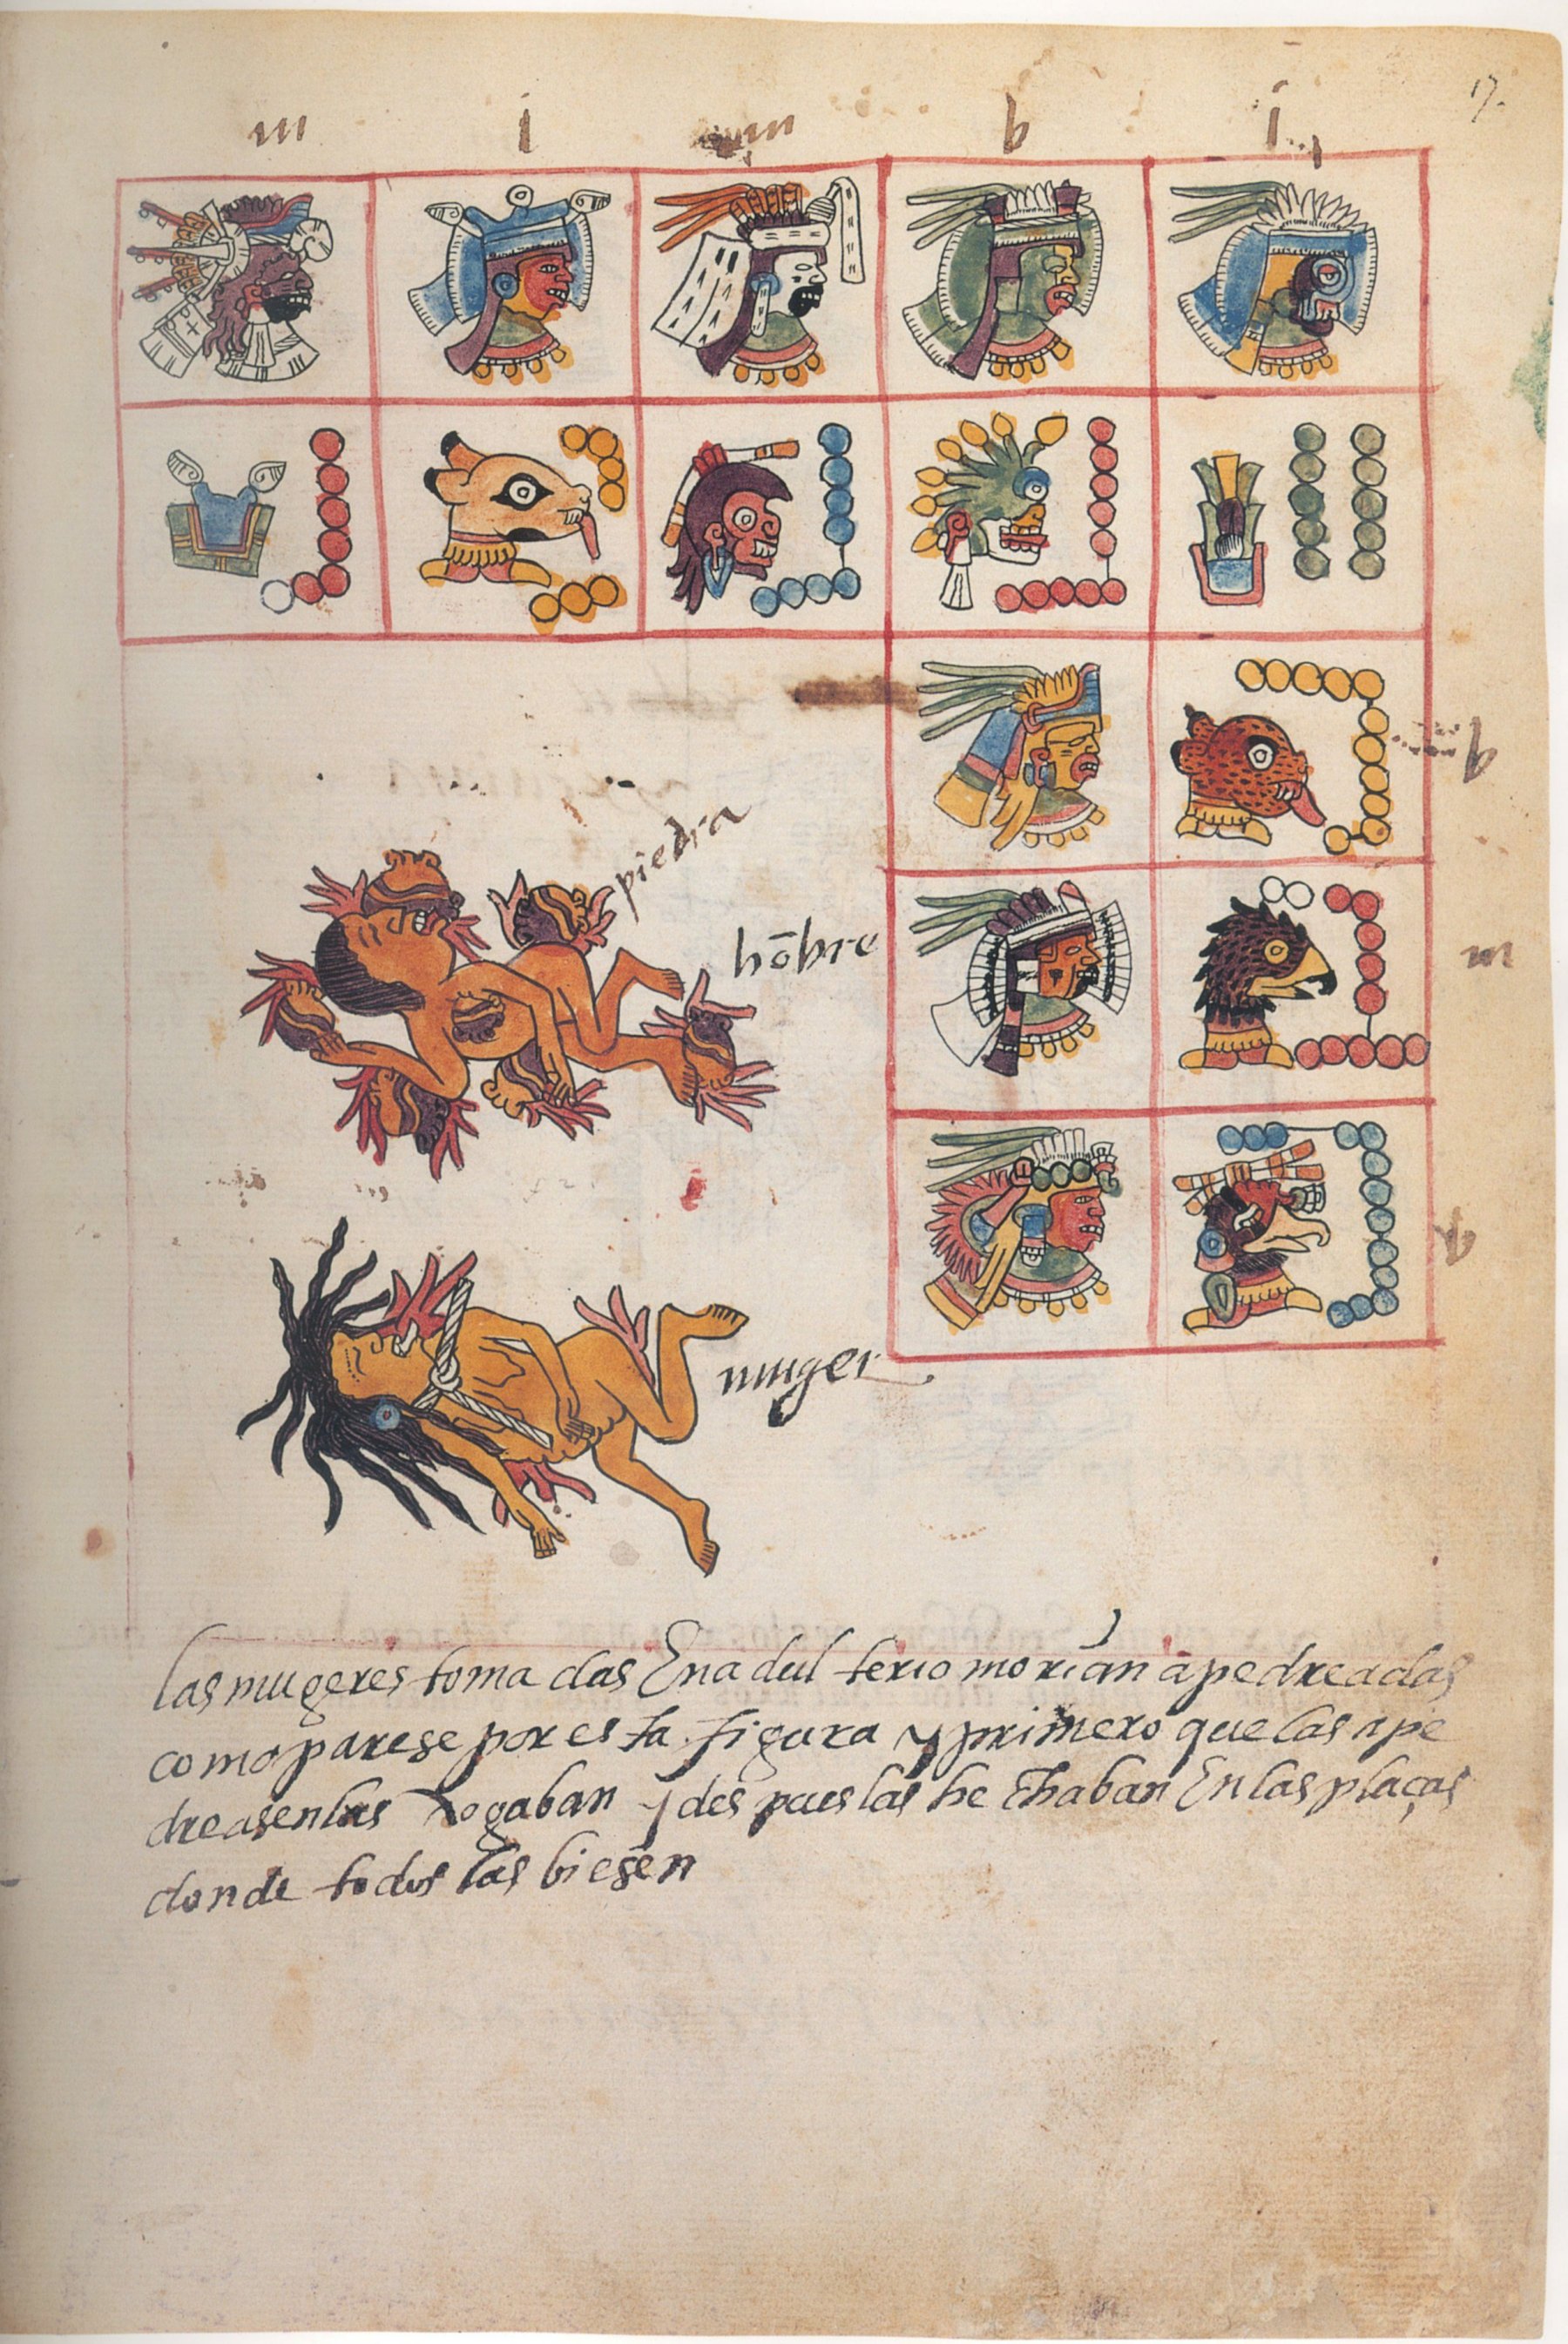 17
m i m b i
q
piedra
hõbre
m
q
muger
las mugeres toma das En a dul terio morian apedreadas
como parese por esta figura y primero que las ape
dreasen las hogaban y des pues las he chaban En las plaças
donde todos las biesen